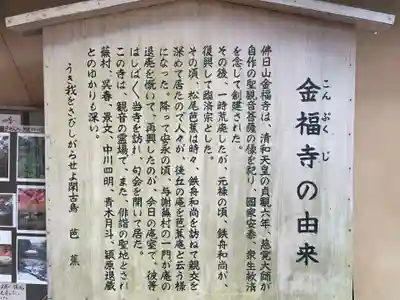 こんぷくじ
金福寺の由来
佛日山金福寺は、清和天皇の貞観六年、慈覚大師が
自作の聖観音菩薩の像を祀り、國家安泰、衆生救済
を念じて創建された。
その後、一時荒廃したが、元禄の頃、鉄舟和尚が、
復興して臨済宗とした。
その頃、松尾芭蕉は時々、鉄舟和尚を訪ねて親交を
深めて居たので人々が、後丘の庵を芭蕉庵と云う様
になった。降って安永の頃、与謝蕪村の一門が庵の
退廃を慨いて、再興したのが、今日の庵室で、彼等
はしばしば、当寺を訪れ、句会を開いて居た。
この寺は、観音の霊場で、また、俳諧の聖地とされ
蕪村、呉春、景文、中川四明、青木月斗、頴原退蔵
とのゆかりも深い。
うき我をさびしがらせよ閑古鳥　芭蕉